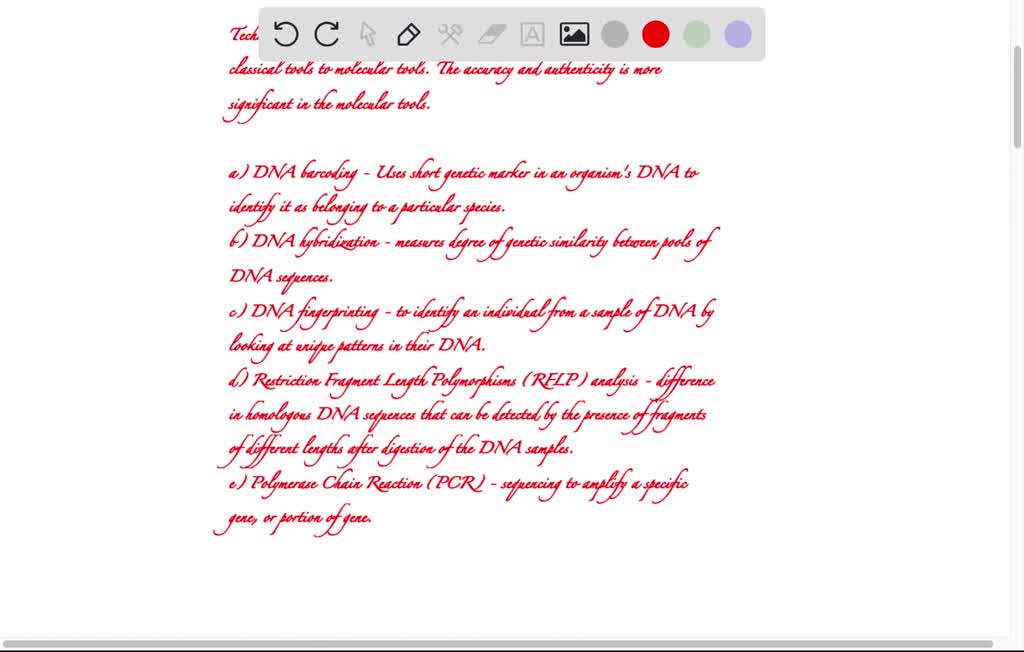 Tech
classical tools to molecular tools. The accuracy and authenticity is more
significant in the molecular tools.
a) DNA barcoding - Uses short genetic marker in an organism's DNA to
identify it as belonging to a particular species.
b) DNA hybridization - measures degree of genetic similarity between pools of
DNA sequences.
c) DNA fingerprinting - to identify an individual from a sample of DNA by
looking at unique patterns in their DNA.
d) Restriction Fragment Length Polymorphisms (RFLP) analysis - difference
in homologous DNA sequences that can be detected by the presence of fragments
of different lengths after digestion of the DNA samples.
e) Polymerase Chain Reaction (PCR) - sequencing to amplify a specific
gene, or portion of gene.